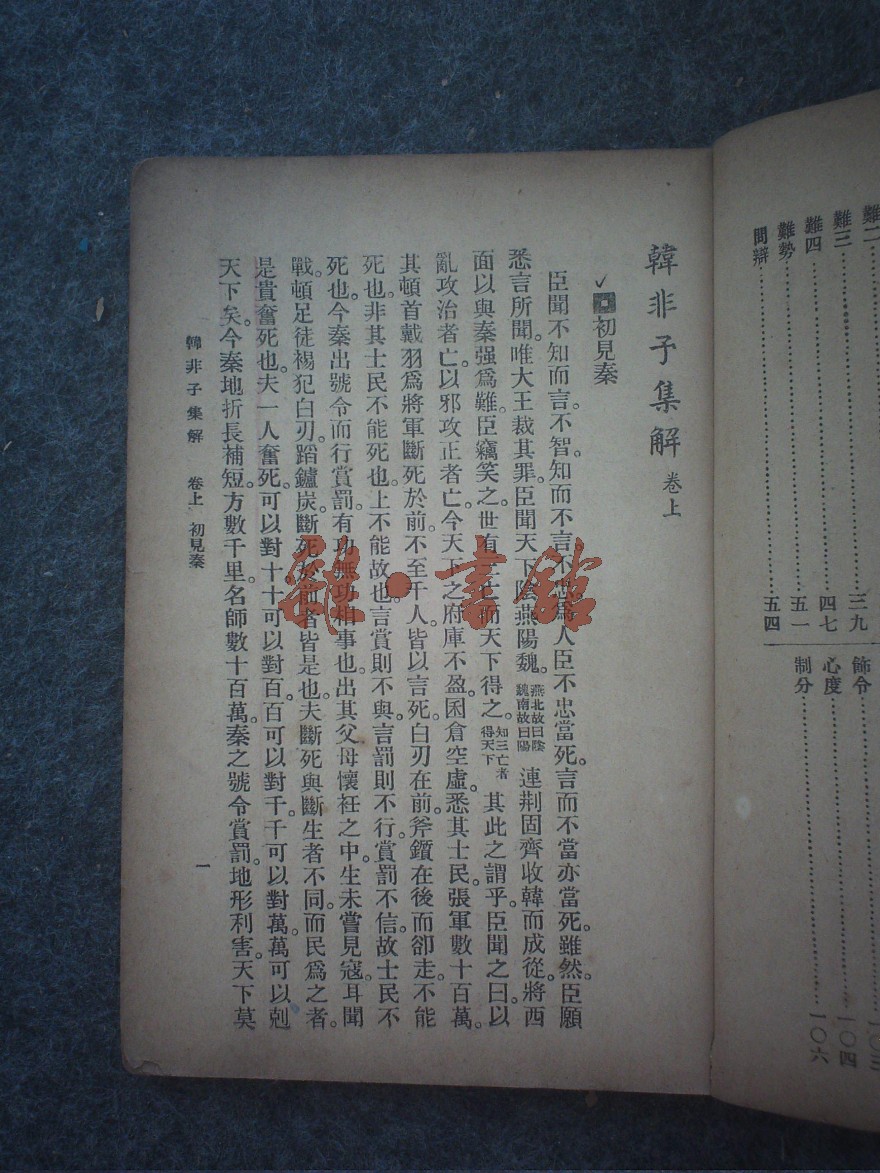 難二
難三……三九
難四……四七
難勢……五一
問辯……五四
飾令……一〇三
心度……一〇四
制分……一〇六
韓非子集解 卷上
初見秦
臣聞不知而言。不智。知而不言。不忠。爲人臣不忠當死。言而不當亦當死。雖然。臣願
悉言所聞。唯大王裁其罪。臣聞天下陰燕陽魏。燕北故曰陰魏南故曰陽連荆固齊收韓而成從。將西
面以與秦强爲難。臣竊笑之。世有三亡。而天下得之。知三亡者得天下其此之謂乎。臣聞之曰。以
亂攻治者亡。以邪攻正者亡。今天下之府庫不盈。囷倉空虛。悉其士民。張軍數十百萬。
其頓首戴羽爲將軍斷死於前。不至千人。皆以言死。白刃在前。斧鑕在後。而卻走。不能
死也。非其士民不能死也。上不能故也。言賞則不與。言罰則不行。賞罰不信。故士民不
死也。今秦出號令而行賞罰。有功無功相事也。出其父母懷衽之中。生未嘗見寇耳。聞
戰。頓足徒裼。犯白刃。蹈鑪炭。斷死於前者皆是也。夫斷死與斷生者不同。而民爲之者。
是貴奮死也。夫一人奮死。可以對十。十可以對百。百可以對千。千可以對萬。萬可以剋
天下矣。今秦地折長補短。方數千里。名師數十百萬。秦之號令賞罰。地形利害。天下莫
韓非子集解 卷上 初見秦 一
雜·書館